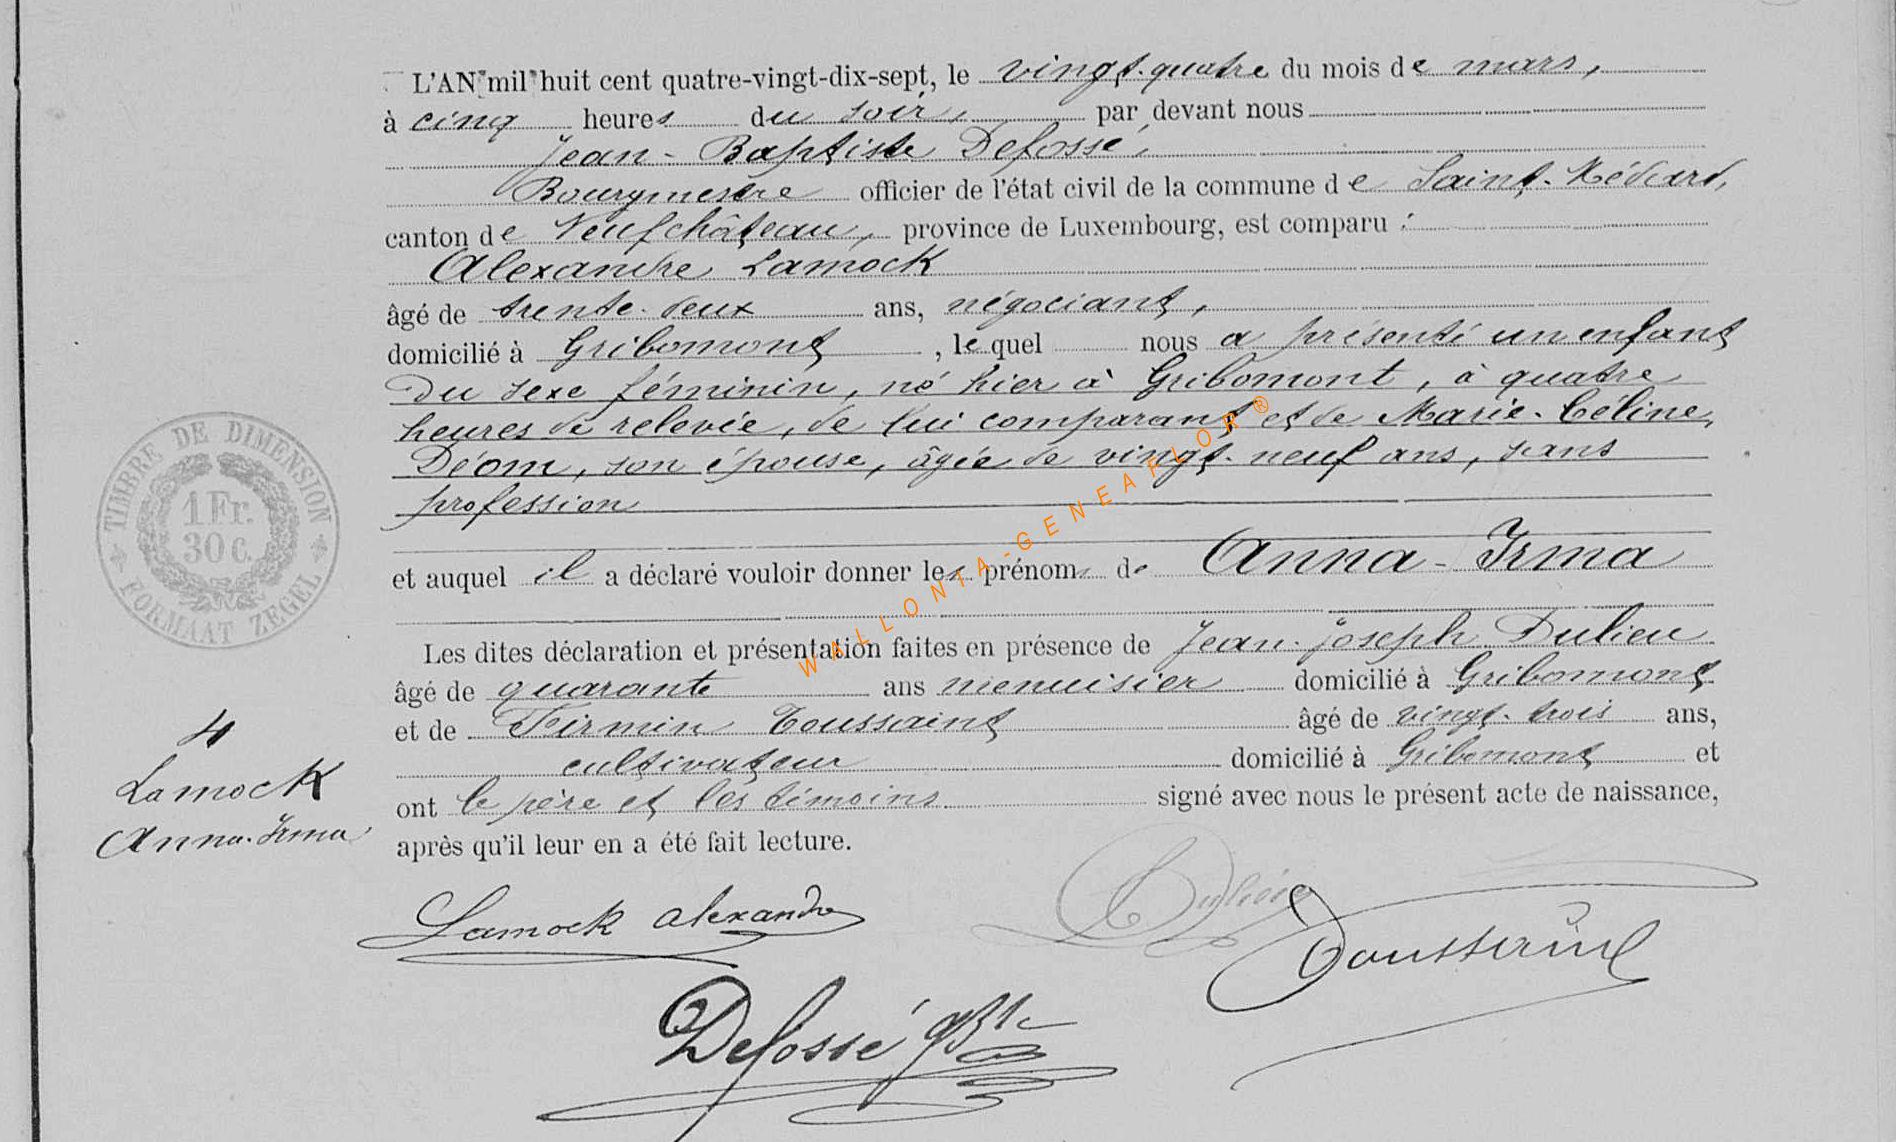 L'AN mil huit cent quatre-vingt-dix-sept, le vingt-quatre du mois de mars,
à cinq heures du soir, par devant nous
Jean-Baptiste Defossé,
Bourgmestre officier de l'état civil de la commune de Saint-Médard,
canton de Neufchâteau, province de Luxembourg, est comparu :
Alexandre Lamock
âgé de trente-deux ans, négociant,
domicilié à Gribomont, lequel nous a présenté un enfant
du sexe féminin, né hier à Gribomont, à quatre
heures de relevée, de lui comparant et de Marie-Céline
Déom, son épouse, âgée de vingt-neuf ans, sans
profession
et auquel il a déclaré vouloir donner les prénoms de Anna-Irma
Les dites déclaration et présentation faites en présence de Jean-Joseph Dulieu
âgé de quarante ans menuisier domicilié à Gribomont
et de Firmin Toussaint âgé de vingt-trois ans,
cultivateur domicilié à Gribomont et
ont le père et les témoins signé avec nous le présent acte de naissance,
après qu'il leur en a été fait lecture.
4
Lamock
Anna-Irma
Lamock alexandre
Dulieu
Toussaint
Defossé JBte
TIMBRE DE DIMENSION
1 Fr.
30 C.
FORMAAT ZEGEL
WALLONIA-GENEAFLOR®